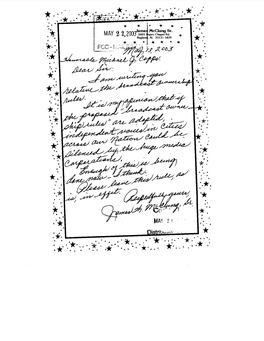 MAY 22 2003
James McClung Sr.
FCC-
May 13, 2003
Honorable Michael J. Copps
Dear Sir
I am writing you
relative the broadcast ownership
rules.
It is my opinion that if
the proposed broadcast owner-
ship rules are adopted,
independent voices in cities
across our Nation could be
silenced by the huge media
Corporations.
Enough of this is being
done now - I think.
Please leave this rule, as
is, in effect.
Respectfully yours,
James A. McClung, Sr.
MAY 2
Distri